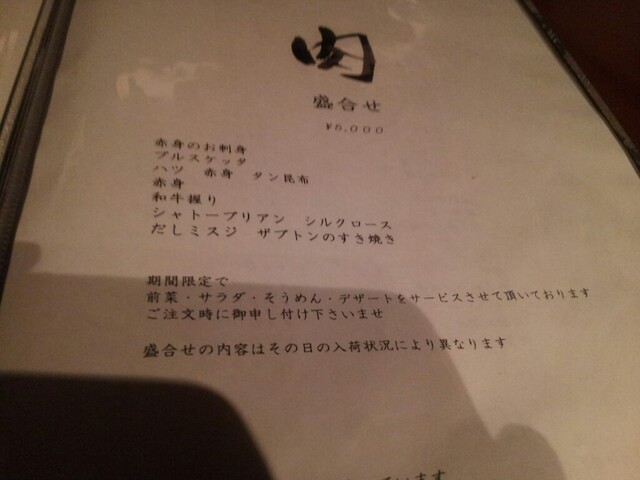 肉
盛合せ
赤身のお刺身
ブルスケッタ
ハツ 赤身 タン昆布
赤身
和牛握り
シャトーブリアン シルクロース
だしミスジ ザブトンのすき焼き
期間限定で
前菜・サラダ・そうめん・デザートをサービスさせて頂いております
ご注文時に御申し付け下さいませ
盛合せの内容はその日の入荷状況により異なります
います